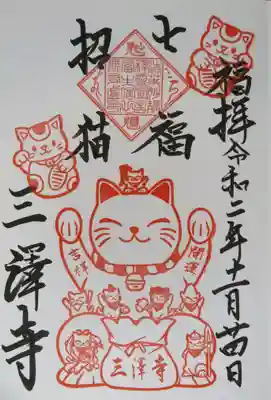 福拝
令和二年十一月廿四日
七福
招猫
三澤寺
開運
吉祥
三澤寺